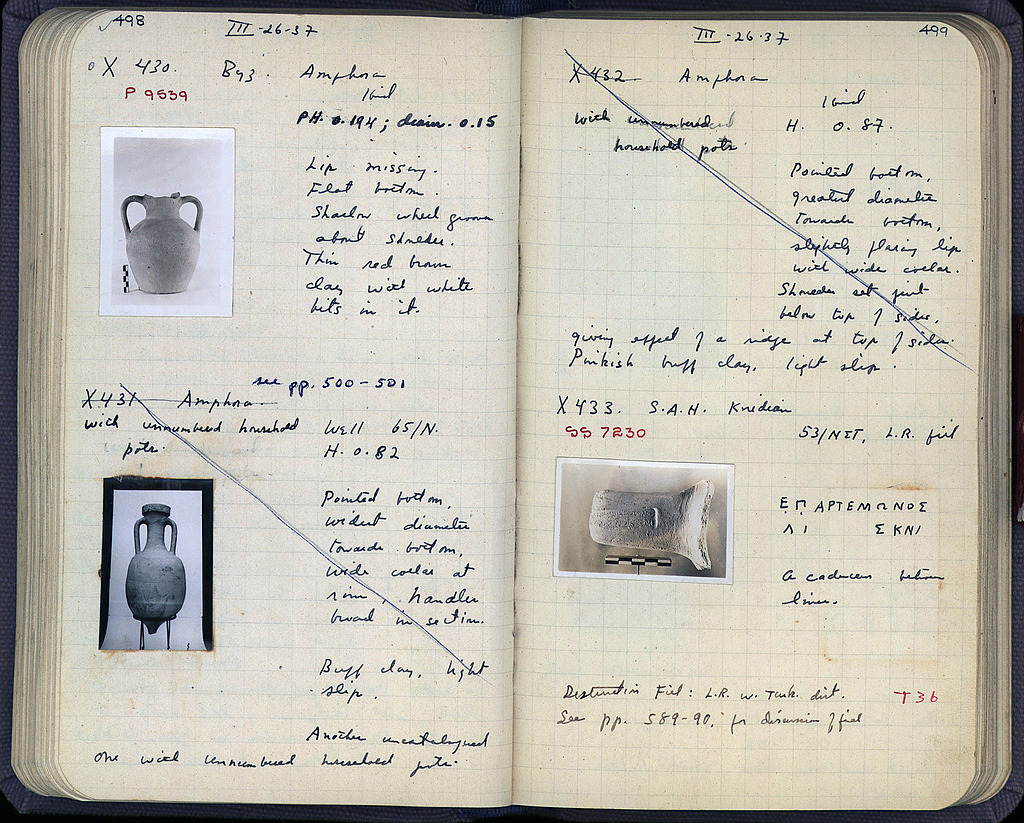 498
III-26-37
X 430. Byz. Amphora
Ibid
P 9539
PH. 0.194; diam. 0.15
Lip missing.
Flat bottom.
Shallow wheel grooves
about shoulder.
Thin red brown
clay with white
bits in it.
see pp. 500-501
X 431 Amphora.
with unnumbered household
pots.
Well 65/N.
H. 0.82
Pointed bottom,
widest diameter
towards bottom,
wide collar at
rim, handles
broad in section.
Buff clay, light
slip.
Another uncatalogued
one with unnumbered household pots.
499
III-26-37
X 432 Amphora
Ibid
with unnumbered
household pots
H. 0.87.
Pointed bottom,
greatest diameter
towards bottom,
slightly flaring lip
with wide collar.
Shoulder set just
below top of sides,
giving effect of a ridge at top of sides.
Pinkish buff clay, light slip.
X 433. S.A.H. Knidian
SS 7230
53/ΝΣΤ, L.R. fill
ΕΠ ΑΡΤΕΜΩΝΟΣ
ΛΙ ΣΚΝΙ
A caduceus between
lines.
Destruction Fill: L.R. w. Turk. dist.
T36
See pp. 589-90, for discussion of fill